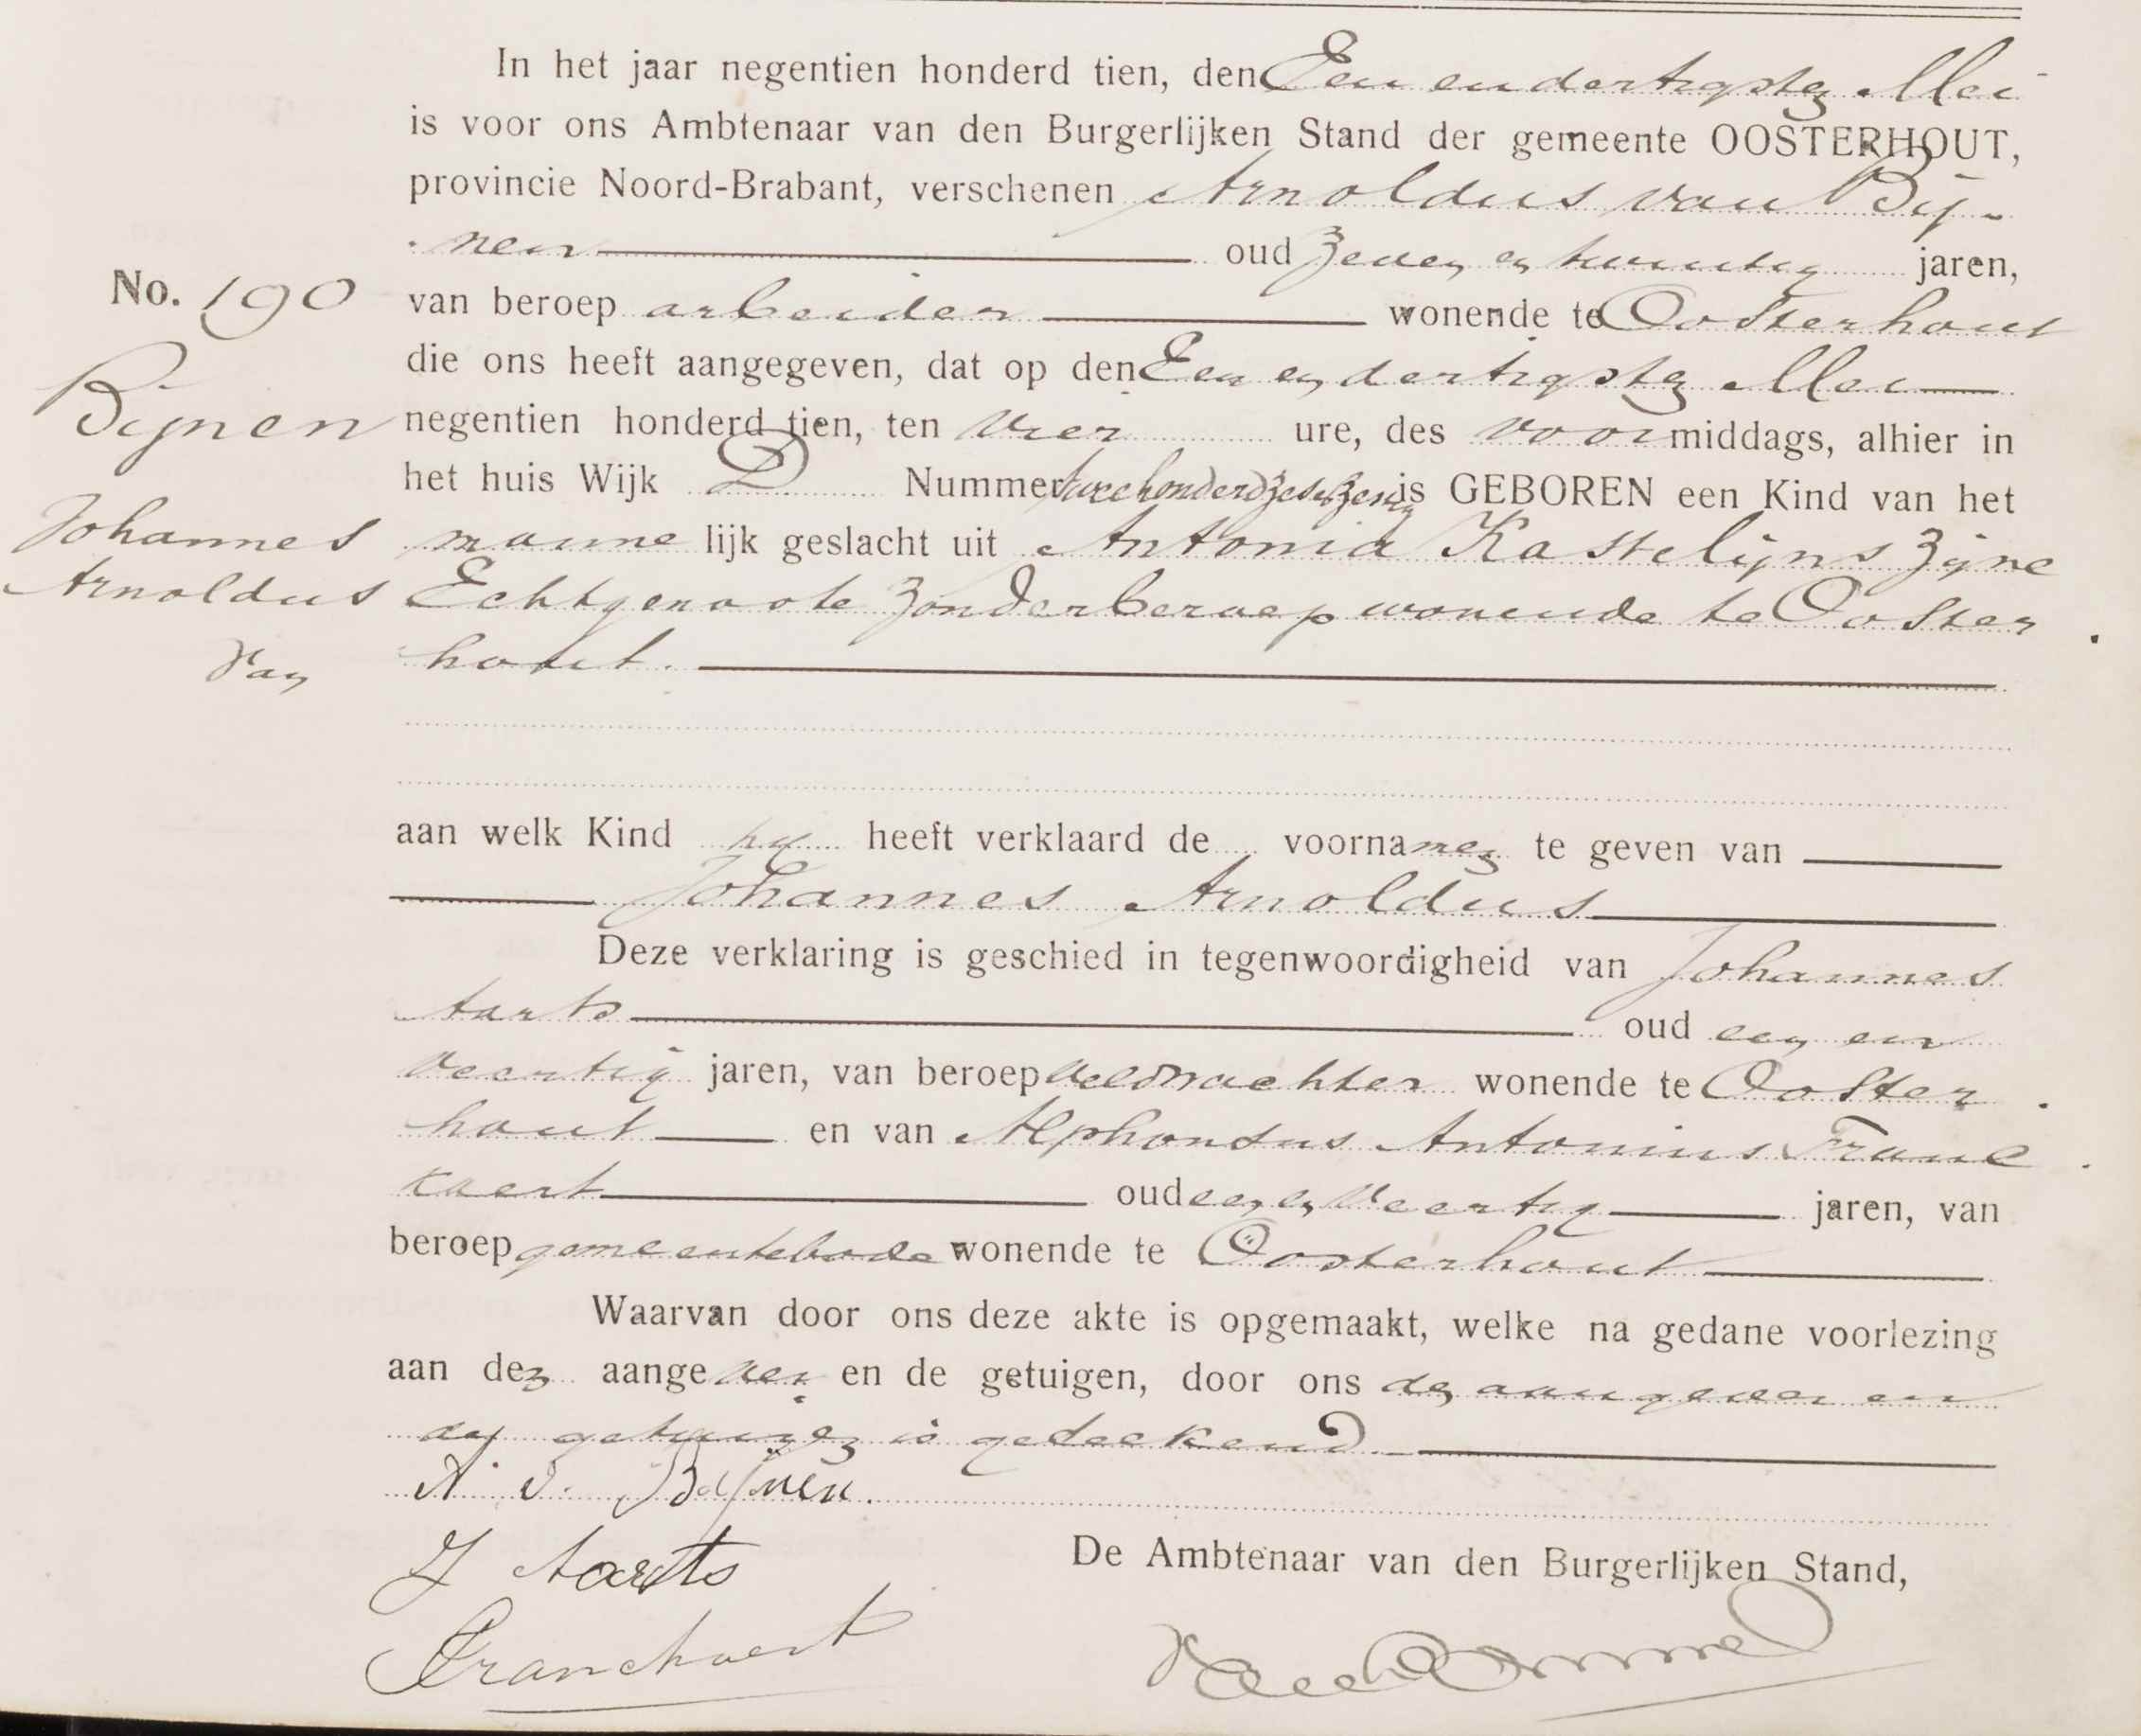 In het jaar negentien honderd tien, den Een en dertigste Mei
is voor ons Ambtenaar van den Burgerlijken Stand der gemeente OOSTERHOUT,
provincie Noord-Brabant, verschenen Arnoldus van Bij-
nen oud zeven en twintig jaren,
No. 190
van beroep arbeider wonende te Oosterhout
die ons heeft aangegeven, dat op den Een en dertigste Mei
Bijnen
negentien honderd tien, ten vier ure, des voormiddags, alhier in
het huis Wijk D Nummer tweehonderdzesenzestig is GEBOREN een Kind van het
Johannes
mannelijk geslacht uit Antonia Kastelijns zijne
Arnoldus
Echtgenoote zonder beroep wonende te Ooster
van
hout.
aan welk Kind hij heeft verklaard de voornamen te geven van
Johannes Arnoldus
Deze verklaring is geschied in tegenwoordigheid van Johannes
Aarts oud een en
veertig jaren, van beroep veldwachter wonende te Ooster
hout en van Alphonsus Antonius Franc
kaert oud een en veertig jaren, van
beroep gemeentebode wonende te Oosterhout
Waarvan door ons deze akte is opgemaakt, welke na gedane voorlezing
aan den aangever en de getuigen, door ons den aangever en
de getuigen is geteekend
A. v. Bijnen.
J Aarts
De Ambtenaar van den Burgerlijken Stand,